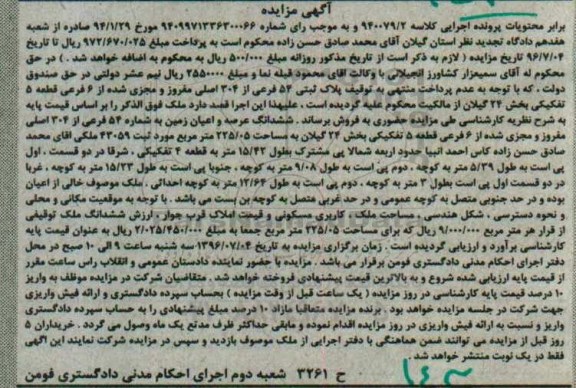 آگهی مزایده
برابر محتویات پرونده اجرایی کلاسه ۹۴۰۰۷۹/۲ و به موجب رای شماره ۹۴۰۹۹۷۱۳۳۶۳۰۰۰۶۶ مورخ ۹۴/۱/۲۹ صادره از شعبه
هفدهم دادگاه تجدید نظر استان گیلان آقای محمد صادق حسن زاده محکوم است به پرداخت مبلغ ۹۷۲/۶۷۰/۰۲۵ ریال تا تاریخ
۹۶/۷/۰۴ تاریخ مزایده ( لازم به ذکر است از تاریخ مذکور روزانه مبلغ ۵۰۰/۰۰۰ ریال به محکوم به اضافه خواهد شد . ) در حق
محکوم له آقای سمیعزار کشاورز الجیلانی با وکالت آقای محمود قبله نما و مبلغ ۲۵۵۰۰۰۰ ریال نیم عشر دولتی در حق صندوق
دولت ، که با توجه به عدم پرداخت منتهی به توقیف پلاک ثبتی ۵۴ فرعی از ۳۰۴ اصلی مفروز و مجزی شده از ۶ فرعی قطعه ۵
تفکیکی بخش ۲۴ گیلان از مالکیت محکوم علیه گردیده است ، علیهذا این اجرا قصد دارد ملک فوق الذکر را بر اساس قیمت پایه
به شرح نظریه کارشناسی طی مزایده حضوری به فروش برساند . ششدانگ عرصه و اعیان زمین به شماره ۵۴ فرعی از ۳۰۴ اصلی
مفروز و مجزی شده از ۶ فرعی قطعه ۵ تفکیکی بخش ۲۴ گیلان به مساحت ۲۲۵/۰۵ متر مربع مورد ثبت ۴۳۰۵۹ ملکی آقای محمد
صادق حسن زاده کاس احمد انبیا حدود اربعه شمالا پی مشترک بطول ۱۵/۴۲ متر به قطعه ۴ تفکیکی ، شرقا در دو قسمت ، اول
پی است به طول ۵/۳۹ متر به کوچه ، دوم پی است به طول ۹/۰۸ متر به کوچه ، جنوبا پی است به طول ۱۵/۲۳ متر به کوچه ، غربا
در دو قسمت اول پی است بطول ۳ متر به کوچه ، دوم پی است به طول ۱۲/۶۴ متر به کوچه احداثی . ملک موصوف خالی از اعیان
بوده و در حد جنوبی متصل به کوچه عمومی و در حد غربی متصل به کوچه بن بست می باشد . با توجه به موقعیت مکانی و محلی
و نحوه دسترسی ، شکل هندسی ، مساحت ملک ، کاربری مسکونی و قیمت املاک قرب جوار ، ارزش ششدانگ ملک توقیفی
از قرار هر متر مربع ۹/۰۰۰/۰۰۰ ریال که برای مساحت ۲۲۵/۰۵ متر مربع جمعا به مبلغ ۲/۰۲۵/۴۵۰/۰۰۰ ریال به عنوان قیمت پایه
کارشناسی برآورد و ارزیابی گردیده است . زمان برگزاری مزایده به تاریخ ۱۳۹۶/۰۷/۰۴ سه شنبه ساعت ۹ الی ۱۰ صبح در محل
دفتر اجرای احکام مدنی دادگستری فومن برقرار می باشد . مزایده با حضور نماینده دادستان عمومی و انقلاب راس ساعت مقرر
از قیمت پایه ارزیابی شده شروع و به بالاترین قیمت پیشنهادی فروخته خواهد شد . متقاضیان شرکت در مزایده موظف به واریز
۱۰ درصد قیمت پایه کارشناسی در روز مزایده ( یک ساعت قبل از وقت مزایده ) بحساب سپرده دادگستری و ارائه فیش واریزی
جهت شرکت در جلسه مزایده خواهد بود . برنده مزایده متعاقبا مازاد ۱۰ درصد مبلغ پیشنهادی را به حساب سپرده دادگستری
واریز و نسبت به ارائه فیش واریزی در روز مزایده اقدام نموده و مابقی حداکثر ظرف مدتع یک ماه وصول می گردد . خریداران ۵
روز قبل از مزایده می توانند ضمن هماهنگی با دفتر اجرایی از ملک موصوف بازدید و سپس در مزایده شرکت نمایند این آگهی
فقط در یک نوبت منتشر خواهد شد .
ح ۳۲۶۱ شعبه دوم اجرای احکام مدنی دادگستری فومن